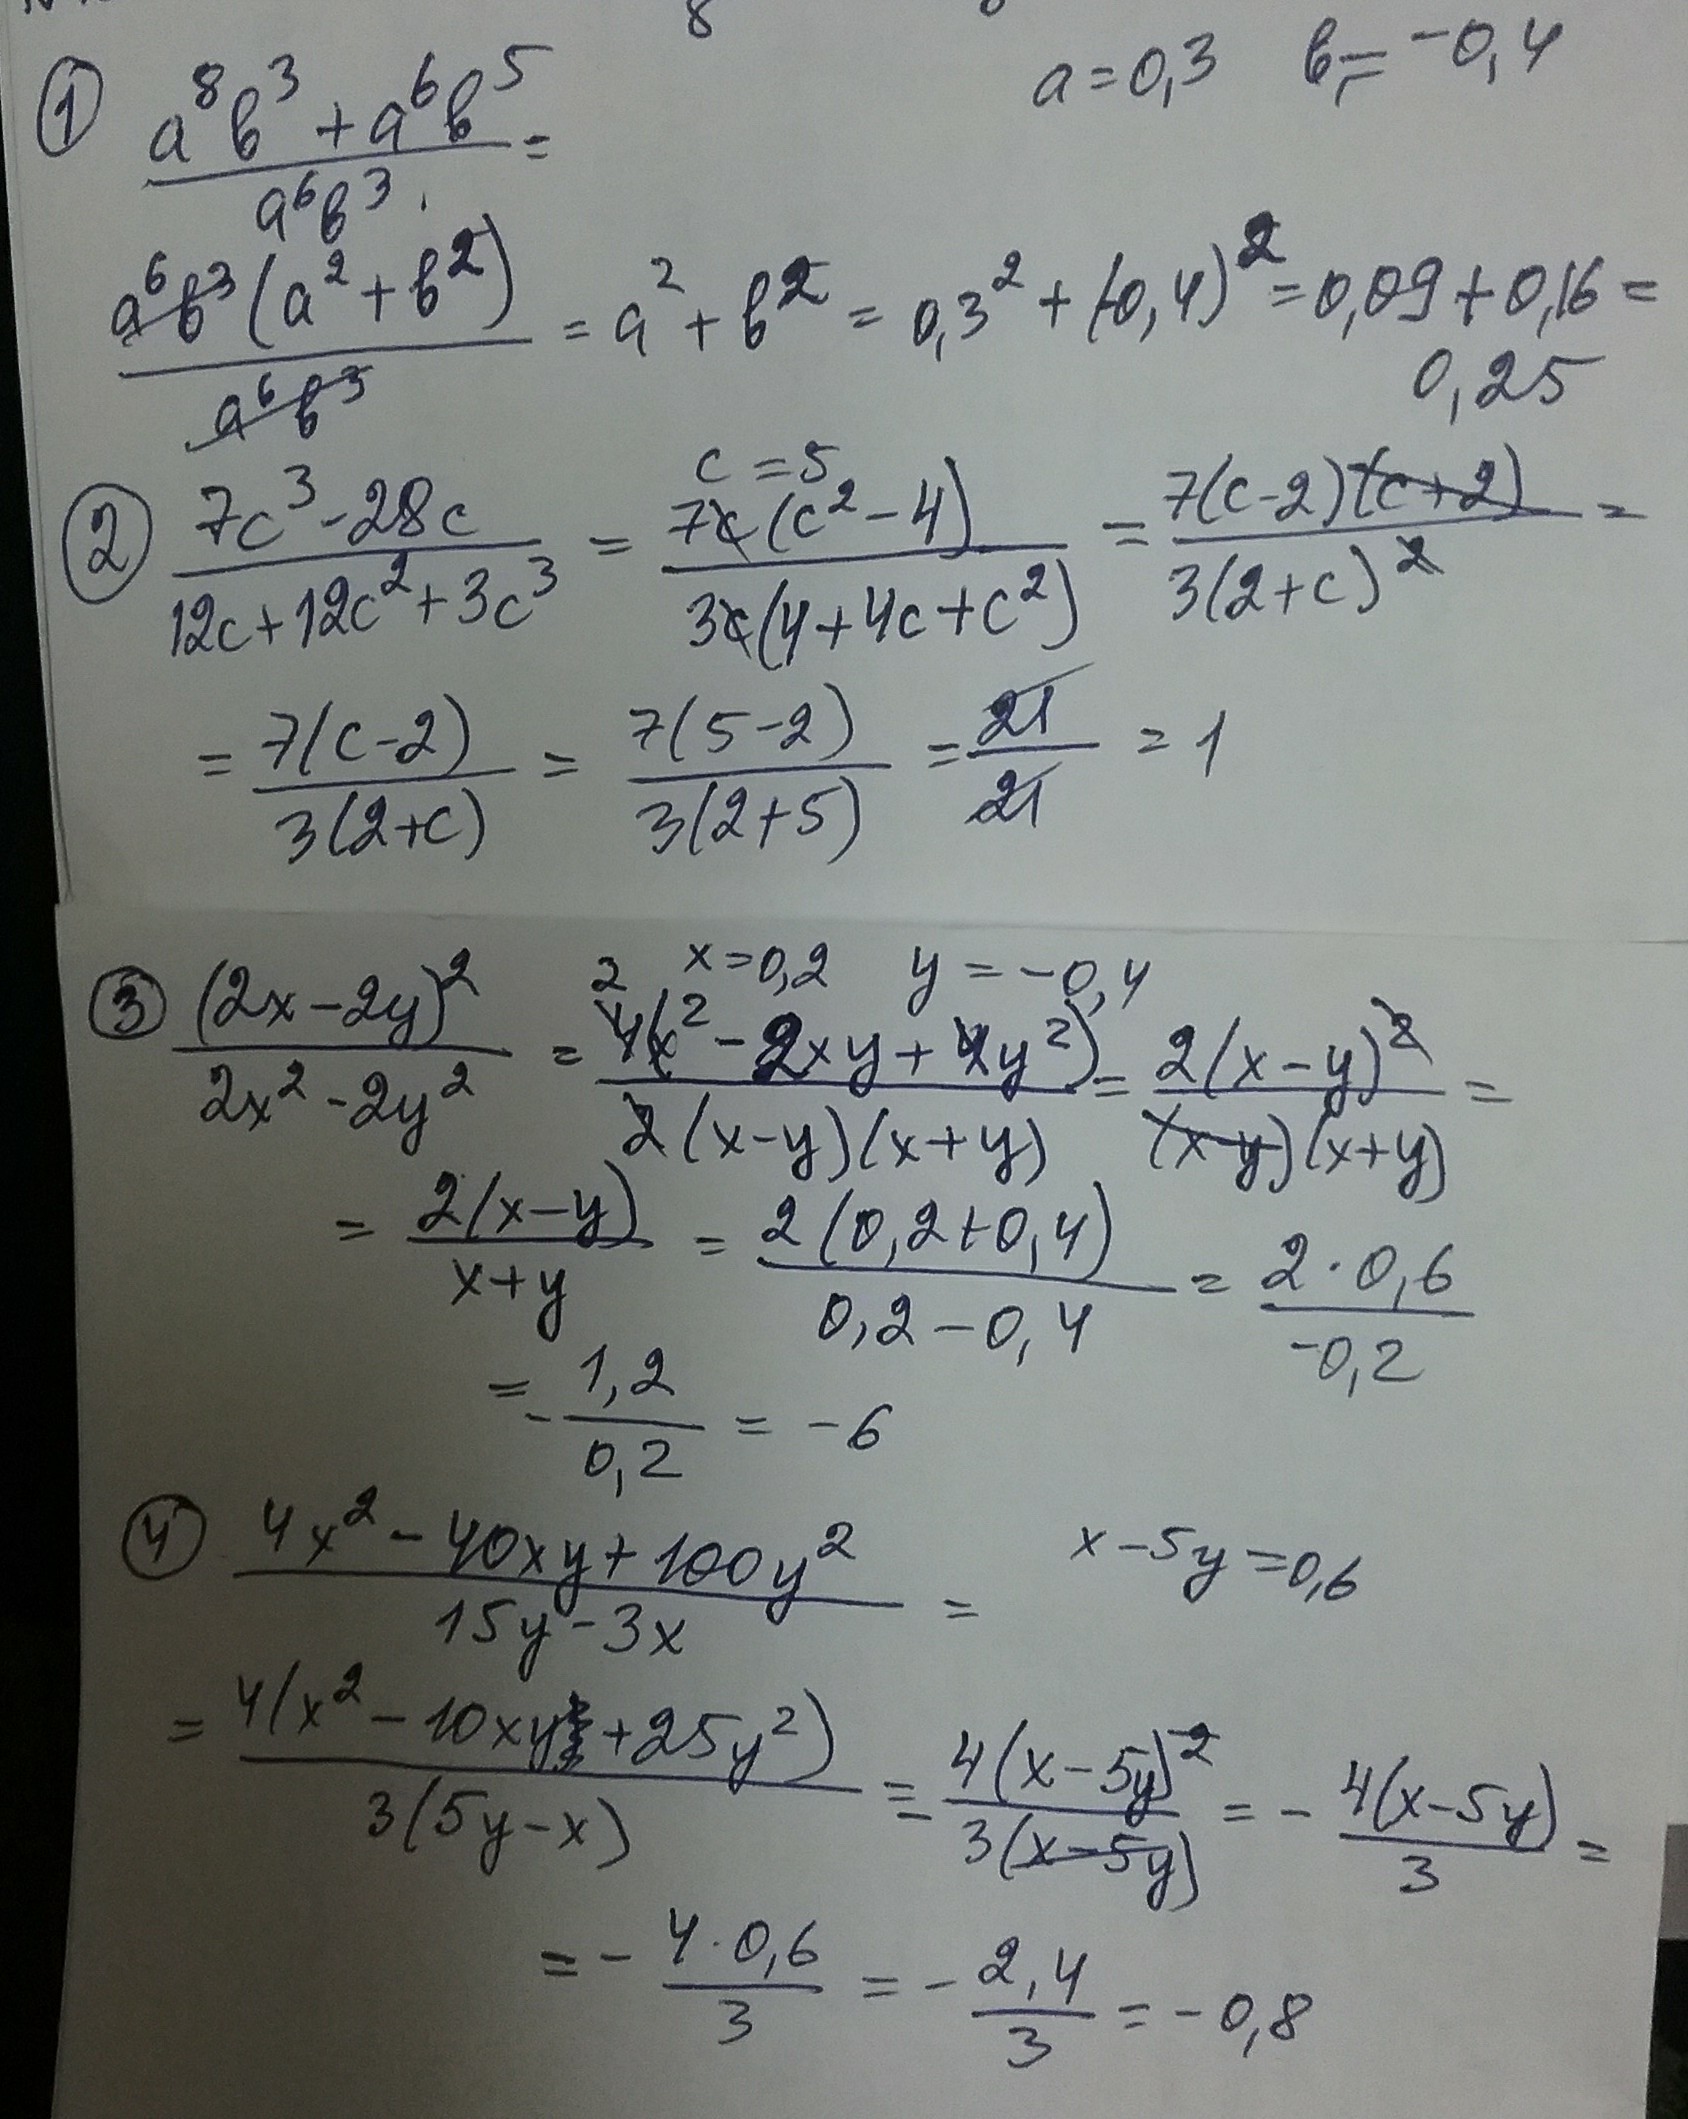 8
a = 0,3 b = -0,4
① (a⁸b³ + a⁶b⁵)/(a⁶b³) =
(a⁶b³(a² + b²))/(a⁶b³) = a² + b² = 0,3² + (-0,4)² = 0,09 + 0,16 =
0,25
c = 5
② (7c³ - 28c)/(12c + 12c² + 3c³) = (7c(c² - 4))/(3c(4 + 4c + c²)) = (7(c-2)(c+2))/(3(2+c)²) =
= (7(c-2))/(3(2+c)) = (7(5-2))/(3(2+5)) = 21/21 = 1
x = 0,2 y = -0,4
③ (2x - 2y)²/(2x² - 2y²) = (4(x² - 2xy + y²))/(2(x-y)(x+y)) = (2(x-y)²)/((x-y)(x+y)) =
= (2(x-y))/(x+y) = (2(0,2+0,4))/(0,2-0,4) = (2·0,6)/(-0,2)
= - 1,2/0,2 = -6
④ (4x² - 40xy + 100y²)/(15y - 3x) = x - 5y = 0,6
= (4(x² - 10xy + 25y²))/(3(5y - x)) = - (4(x-5y)²)/(3(x-5y)) = - (4(x-5y))/3 =
= - (4·0,6)/3 = - 2,4/3 = -0,8